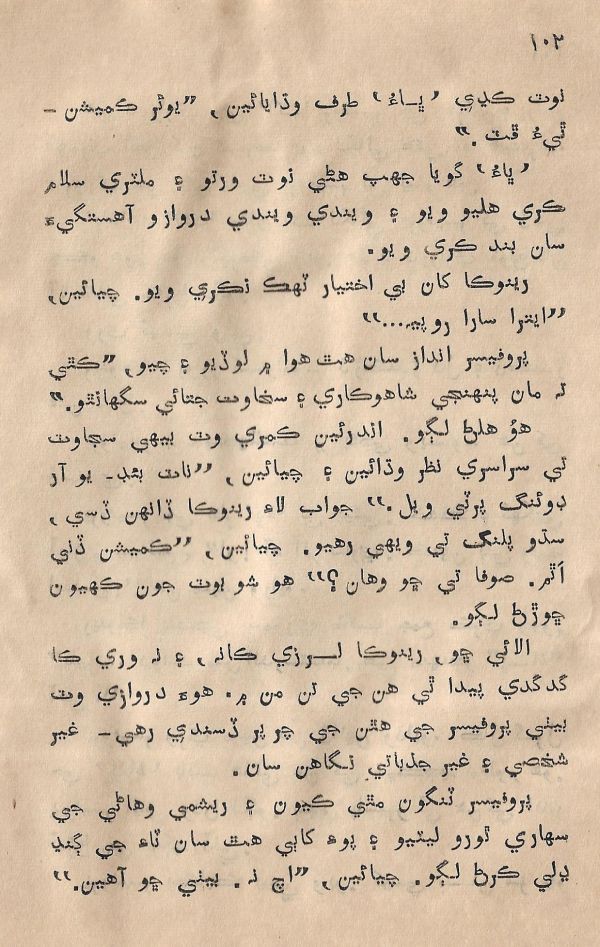 ١٠٢
نوٽ ڪڍي ’ڀاءُ‘ طرف وڌايائين, ”يوئر ڪميشن ـ
ٿيءُ ڦٽ.“
’ڀاءُ‘ گويا جهپ هڻي نوٽ ورتو ۽ ملٽري سلام
ڪري هليو ويو ۽ ويندي ويندي دروازو آهستگيءَ
سان بند ڪري ويو.
رينوڪا کان بي اختيار ٽهڪ نڪري ويو. چيائين,
”ايترا سارا روپيہ...“
پروفيسر انداز سان هٿ هوا ۾ لوڏيو ۽ چيو, ”ڪٿي
تہ مان پنهنجي شاهوڪاري ۽ سخاوت جتائي سگهانٿو.“
هوُ هلڻ لڳو. اندرئين ڪمري وٽ بيهي سجاوٽ
تي سراسري نظر وڌائين ۽ چيائين, ”ناٽ بئڊ ـ يو آر
ڊوئنگ پرٽي ويل.“ جواب لاءِ رينوڪا ڏانهن ڏسي,
سڌو پلنگ تي ويهي رهيو. چيائين, ”ڪميشن ڏني
اَٿم. صوفا تي ڇو وهان؟“ هو شو بوٽ جون ڪهيون
ڇوڙڻ لڳو.
الائي ڇو, رينوڪا لـرزي ڪانہ, ۽ نہ وري ڪا
گدگدي پيدا ٿي هن جي تن من ۾. هوءَ دروازي وٽ
بيٺي پروفيسر جي هٿن جي چرپر ڏسندي رهي ـ غير
شخصي ۽ غير جذباتي نگاهن سان.
پروفيسر ٽنگون مٿي ڪيون ۽ ريشمي وهاڻي جي
سهاري ٿورو ليٽيو ۽ پوءِ کاٻي هٿ سان ٽاءِ جي ڳنڍ
ڍلي ڪرڻ لڳو. چيائين, ”اچ نہ. بيٺي ڇو آهين.“